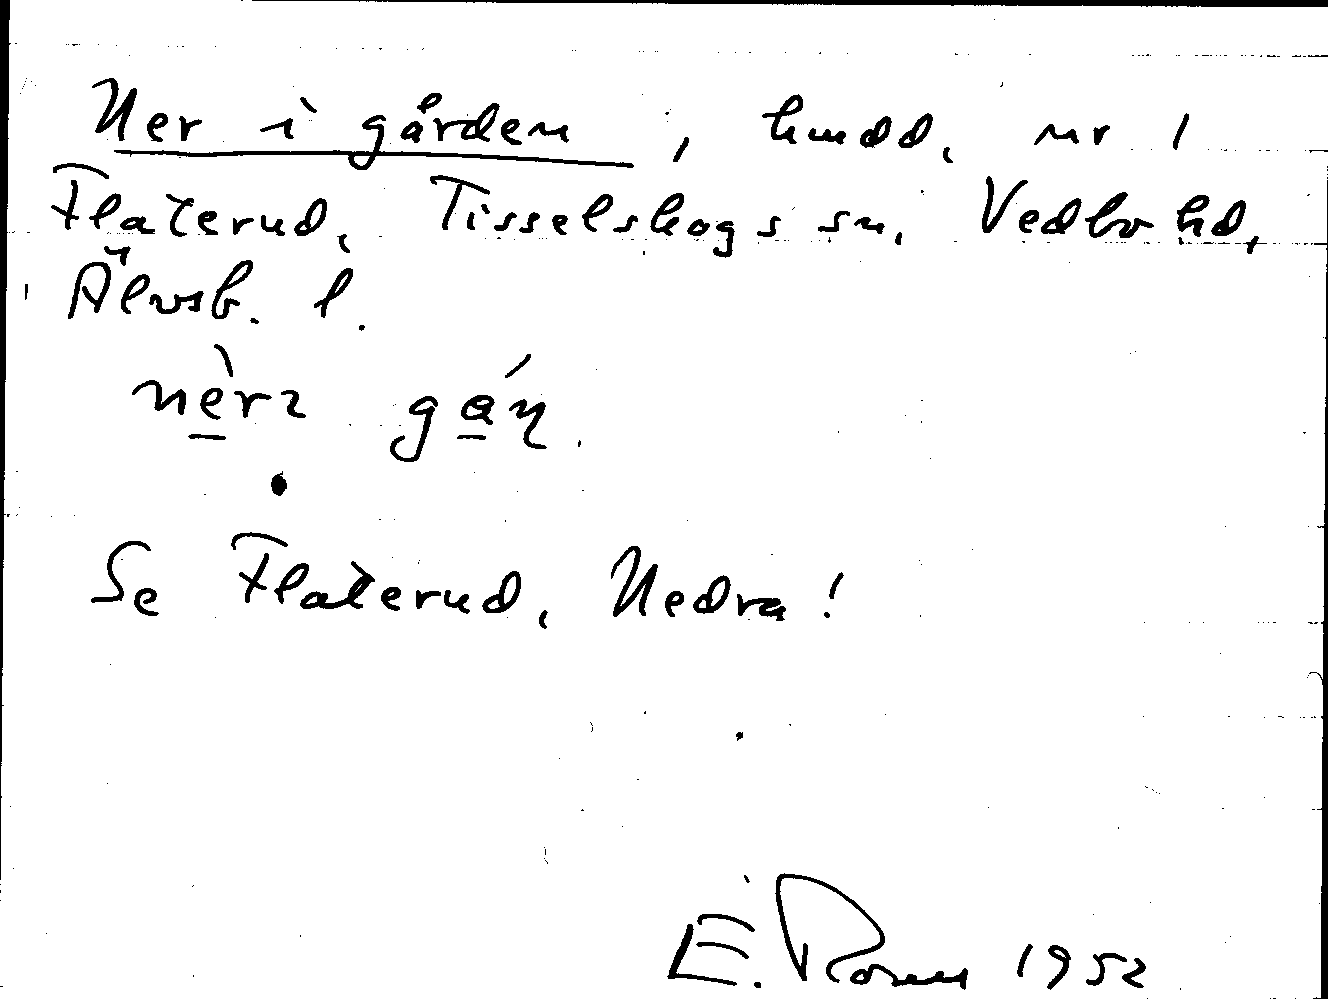 Ner i gården, hmdd. nr 1
Flaterud, Tisselskogs sn, Vedbo hd,
Älvsb. l.
Se Flaterud, Nedra!
E. Rosell 1952